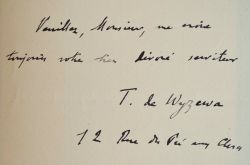 Veuillez, Monsieur, me croire
toujours votre bien dévoué serviteur
T. de Wyzewa
12 Rue du Pré aux Clercs